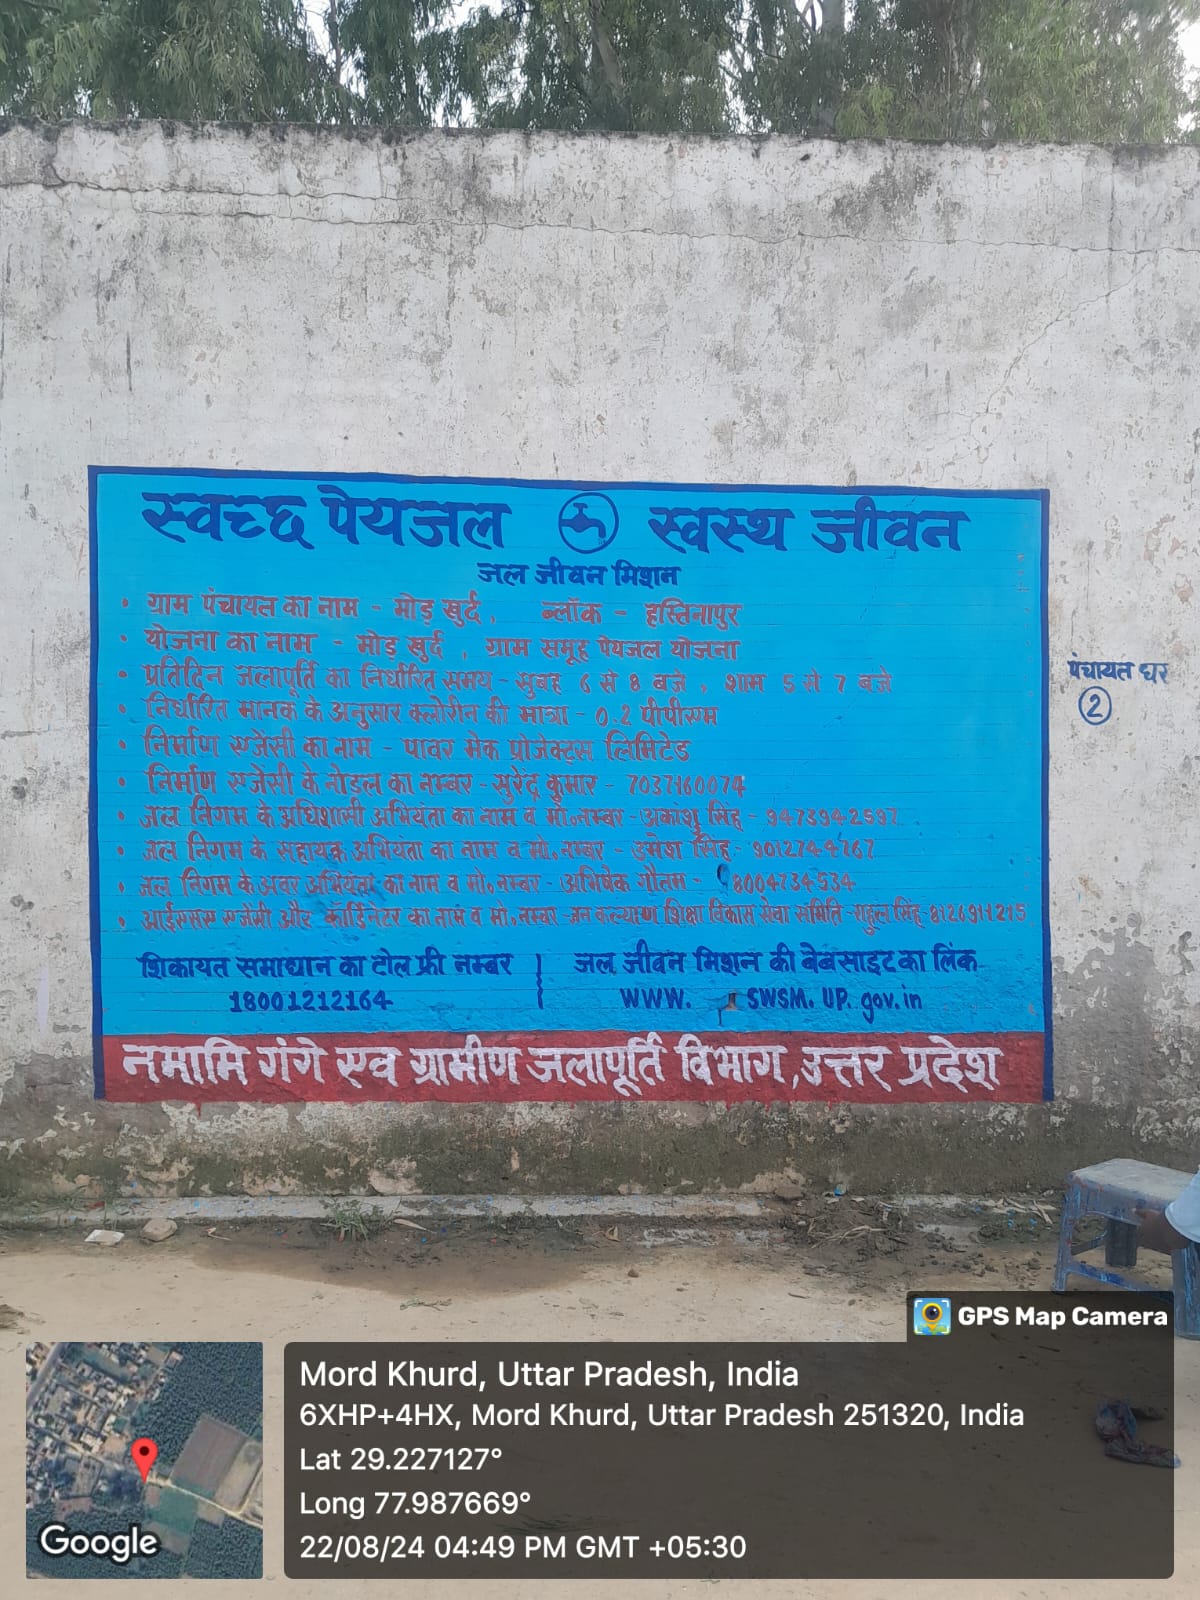 स्वच्छ पेयजल स्वस्थ जीवन
जल जीवन मिशन
• ग्राम पंचायत का नाम - मोड़ खुर्द, ब्लॉक - हस्तिनापुर
• योजना का नाम - मोड़ खुर्द, ग्राम समूह पेयजल योजना
• प्रतिदिन जलापूर्ति का निर्धारित समय - सुबह 6 से 8 बजे, शाम 5 से 7 बजे
• निर्धारित मानक के अनुसार क्लोरीन की मात्रा - 0.2 पीपीएम
• निर्माण एजेंसी का नाम - पावर मेक प्रोजेक्ट्स लिमिटेड
• निर्माण एजेंसी के नोडल का नम्बर - सुरेंद्र कुमार - 7037160074
• जल निगम के अधिशासी अभियंता का नाम व मो० नम्बर - अकांशु सिंह - 9473942597
• जल निगम के सहायक अभियंता का नाम व मो० नम्बर - उमेश सिंह - 9012744767
• जल निगम के अवर अभियंता का नाम व मो० नम्बर - अभिषेक गौतम - 8004734534
• आईएसए एजेंसी और कॉर्डिनेटर का नाम व मो० नम्बर - जन कल्याण शिक्षा विकास सेवा समिति - राहुल सिंह - 8126911215
शिकायत समाधान का टोल फ्री नम्बर
18001212164
जल जीवन मिशन की वेबसाइट का लिंक
WWW. SWSM. UP. gov.in
नमामि गंगे एव ग्रामीण जलापूर्ति विभाग, उत्तर प्रदेश
पंचायत घर
2
GPS Map Camera
Mord Khurd, Uttar Pradesh, India
6XHP+4HX, Mord Khurd, Uttar Pradesh 251320, India
Lat 29.227127°
Long 77.987669°
22/08/24 04:49 PM GMT +05:30
Google